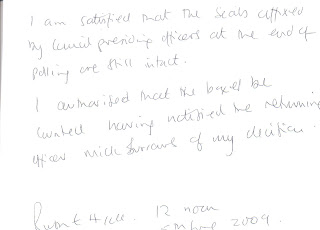 I am satisfied that the seals affixed
by council presiding officers at the end of
polling are still intact.
I authorised that the boxes be
counted having notified the returning
officer mick of my decision.
12 noon
2009.